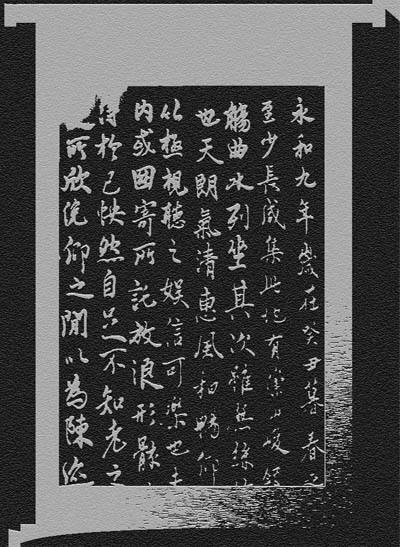 永和九年歲在癸丑暮春之
至少長咸集此地有崇山峻領
觴曲水列坐其次雖無絲竹
世天朗氣清惠風和暢仰
以極視聽之娛信可樂也夫
內或因寄所託放浪形骸
得於己怏然自足不知老之
所欣俛仰之閒以為陳迹